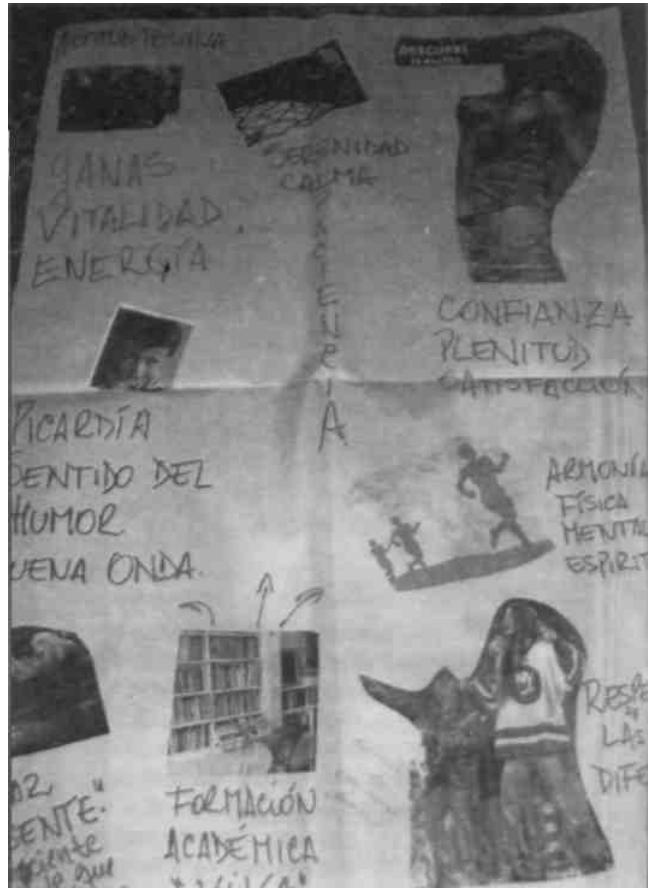 GANAS
VITALIDAD
ENERGÍA
SERENIDAD
CALMA
PACIENCIA
CONFIANZA
PLENITUD
SATISFACCIÓN
PICARDÍA
SENTIDO DEL
HUMOR
UENA ONDA.
ARMONÍA
FÍSICA
MENTAL
ESPIRIT
RESPE
LAS
DIFE
SENTE."
FORMACIÓN
ACADÉMICA